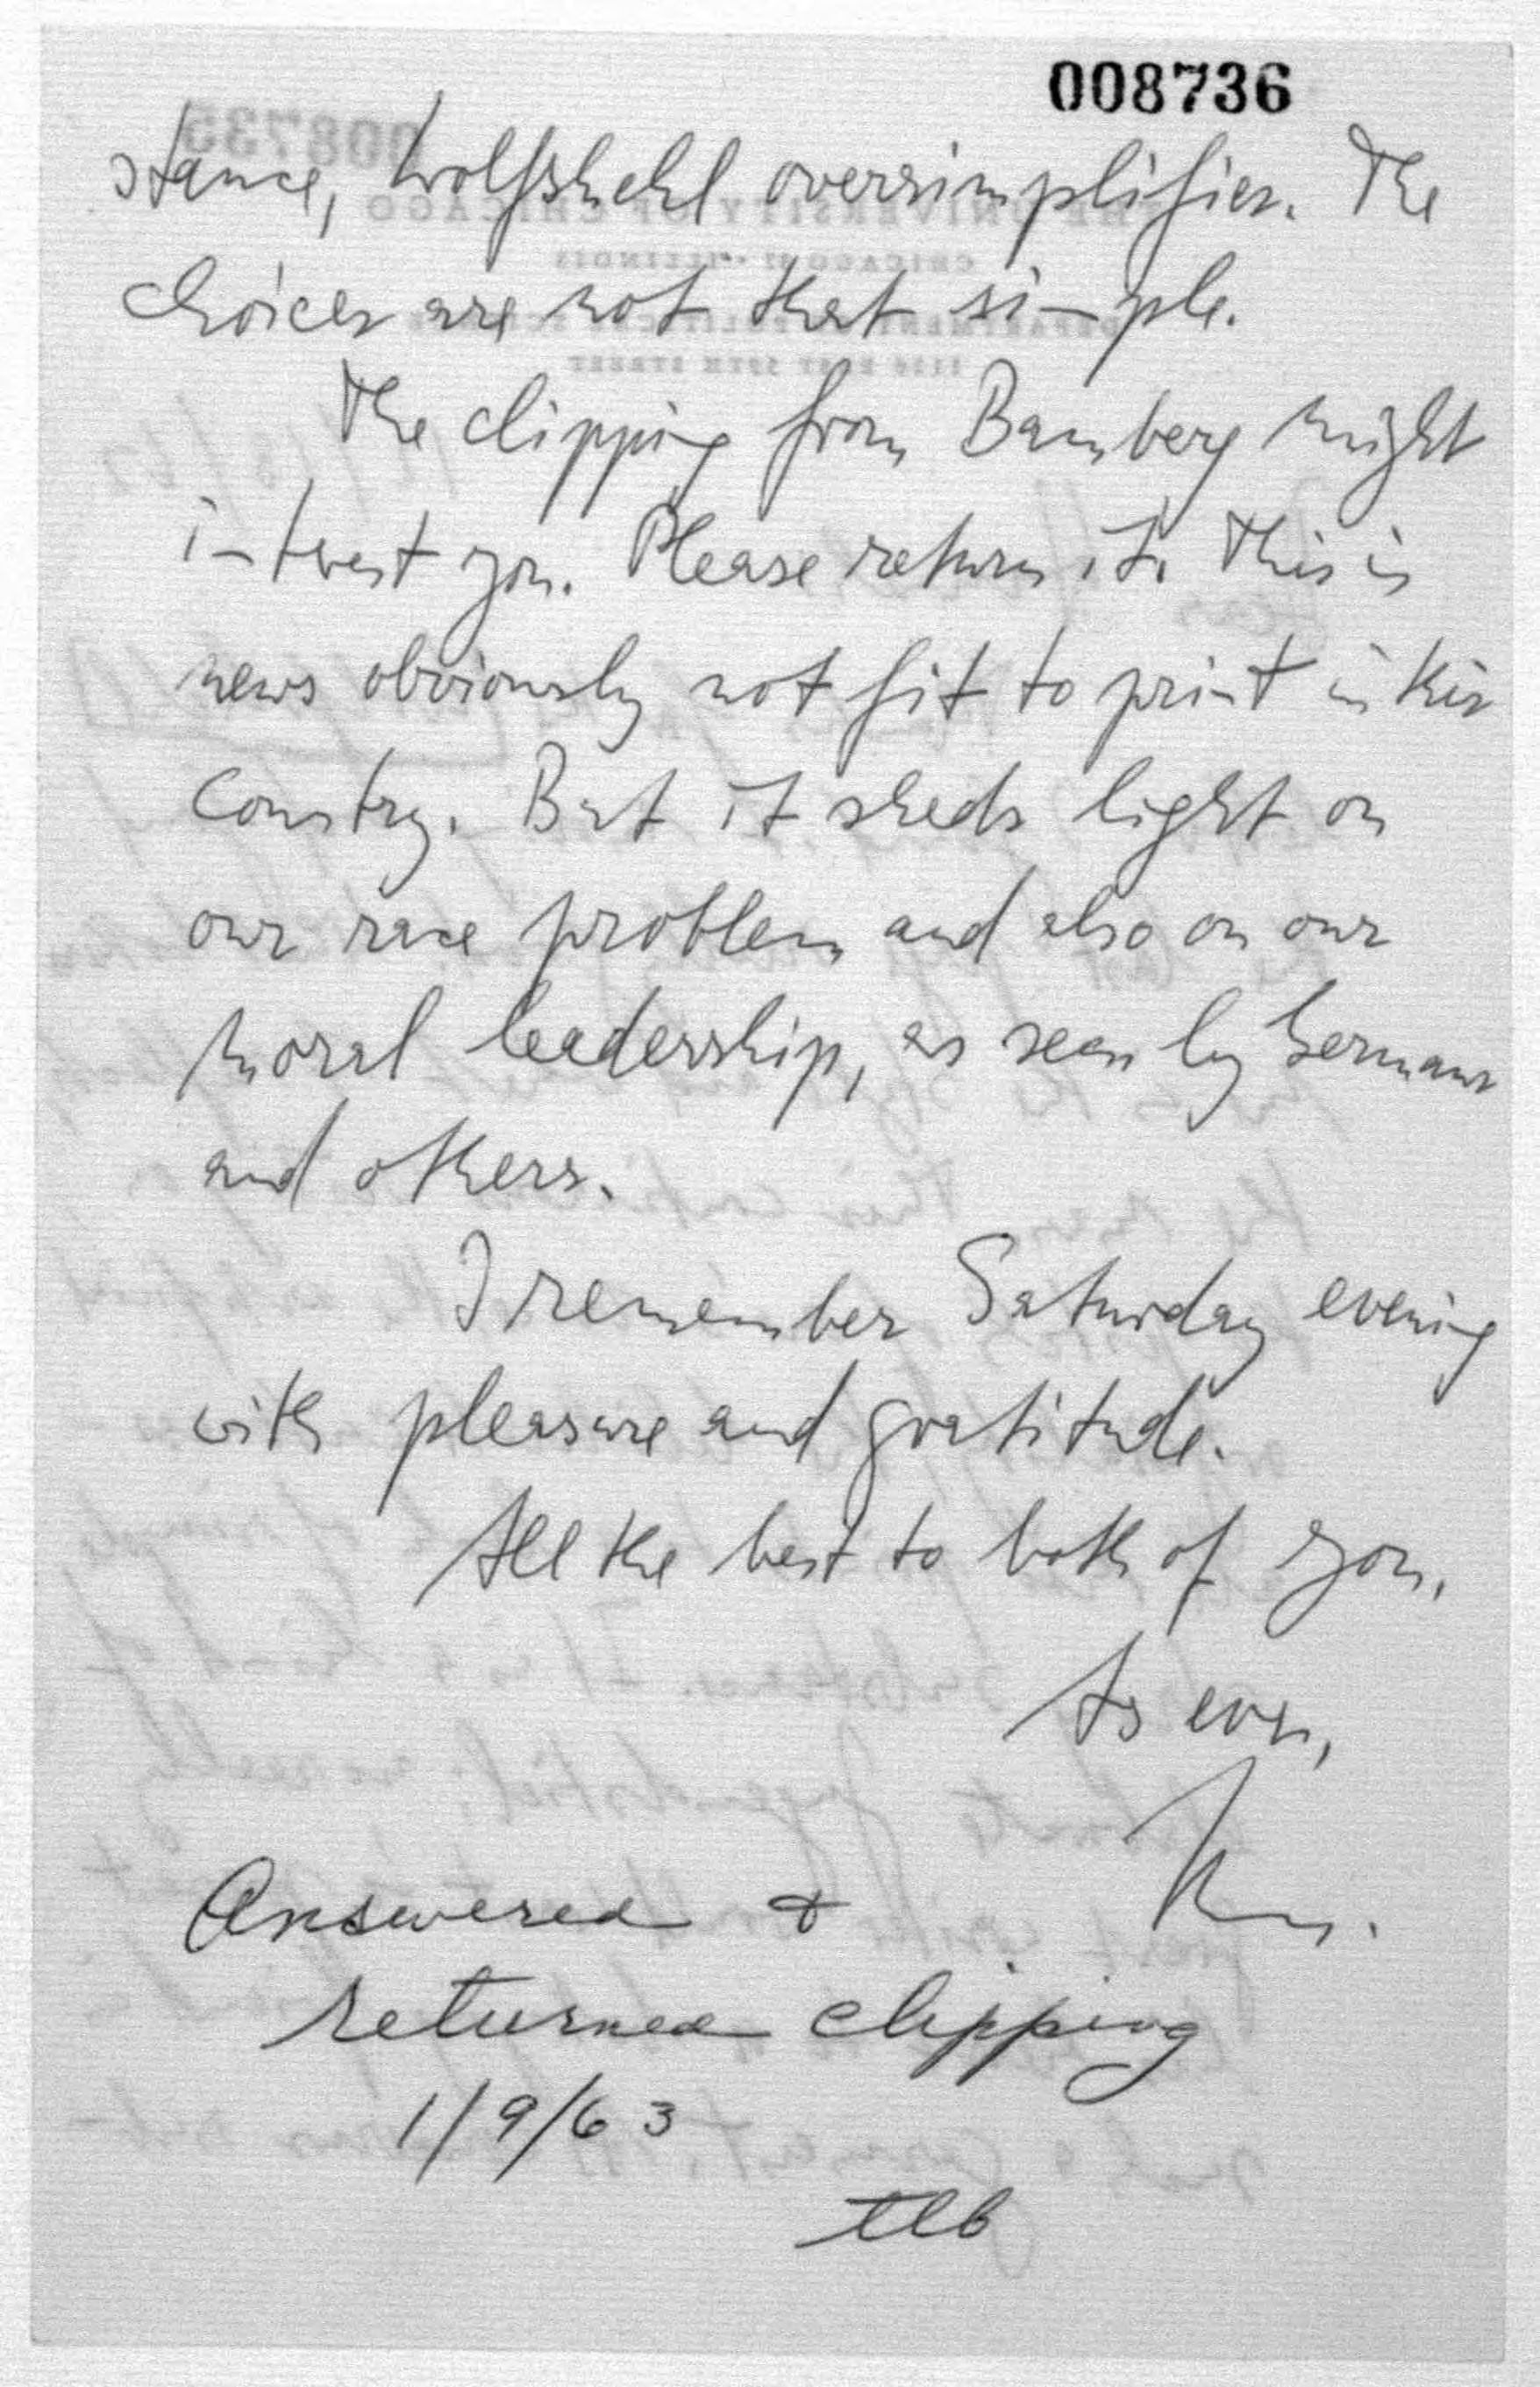 008736
stance, Wolfskehl oversimplifies. The
choices are not that simple.
The clipping from Bamberg might
interest you. Please return it. This is
news obviously not fit to print in this
country. But it sheds light on
our race problem and also on our
moral leadership, as seen by Germans
and others.
I remember Saturday evening
with pleasure and gratitude.
All the best to both of you.
As ever,
Answered &
returned clipping
1/9/63